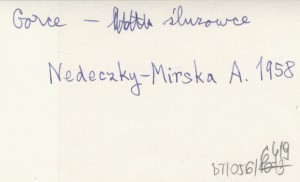 Gorce – śluzowce
Nedeczky-Mirska A. 1958
649
DT/056/